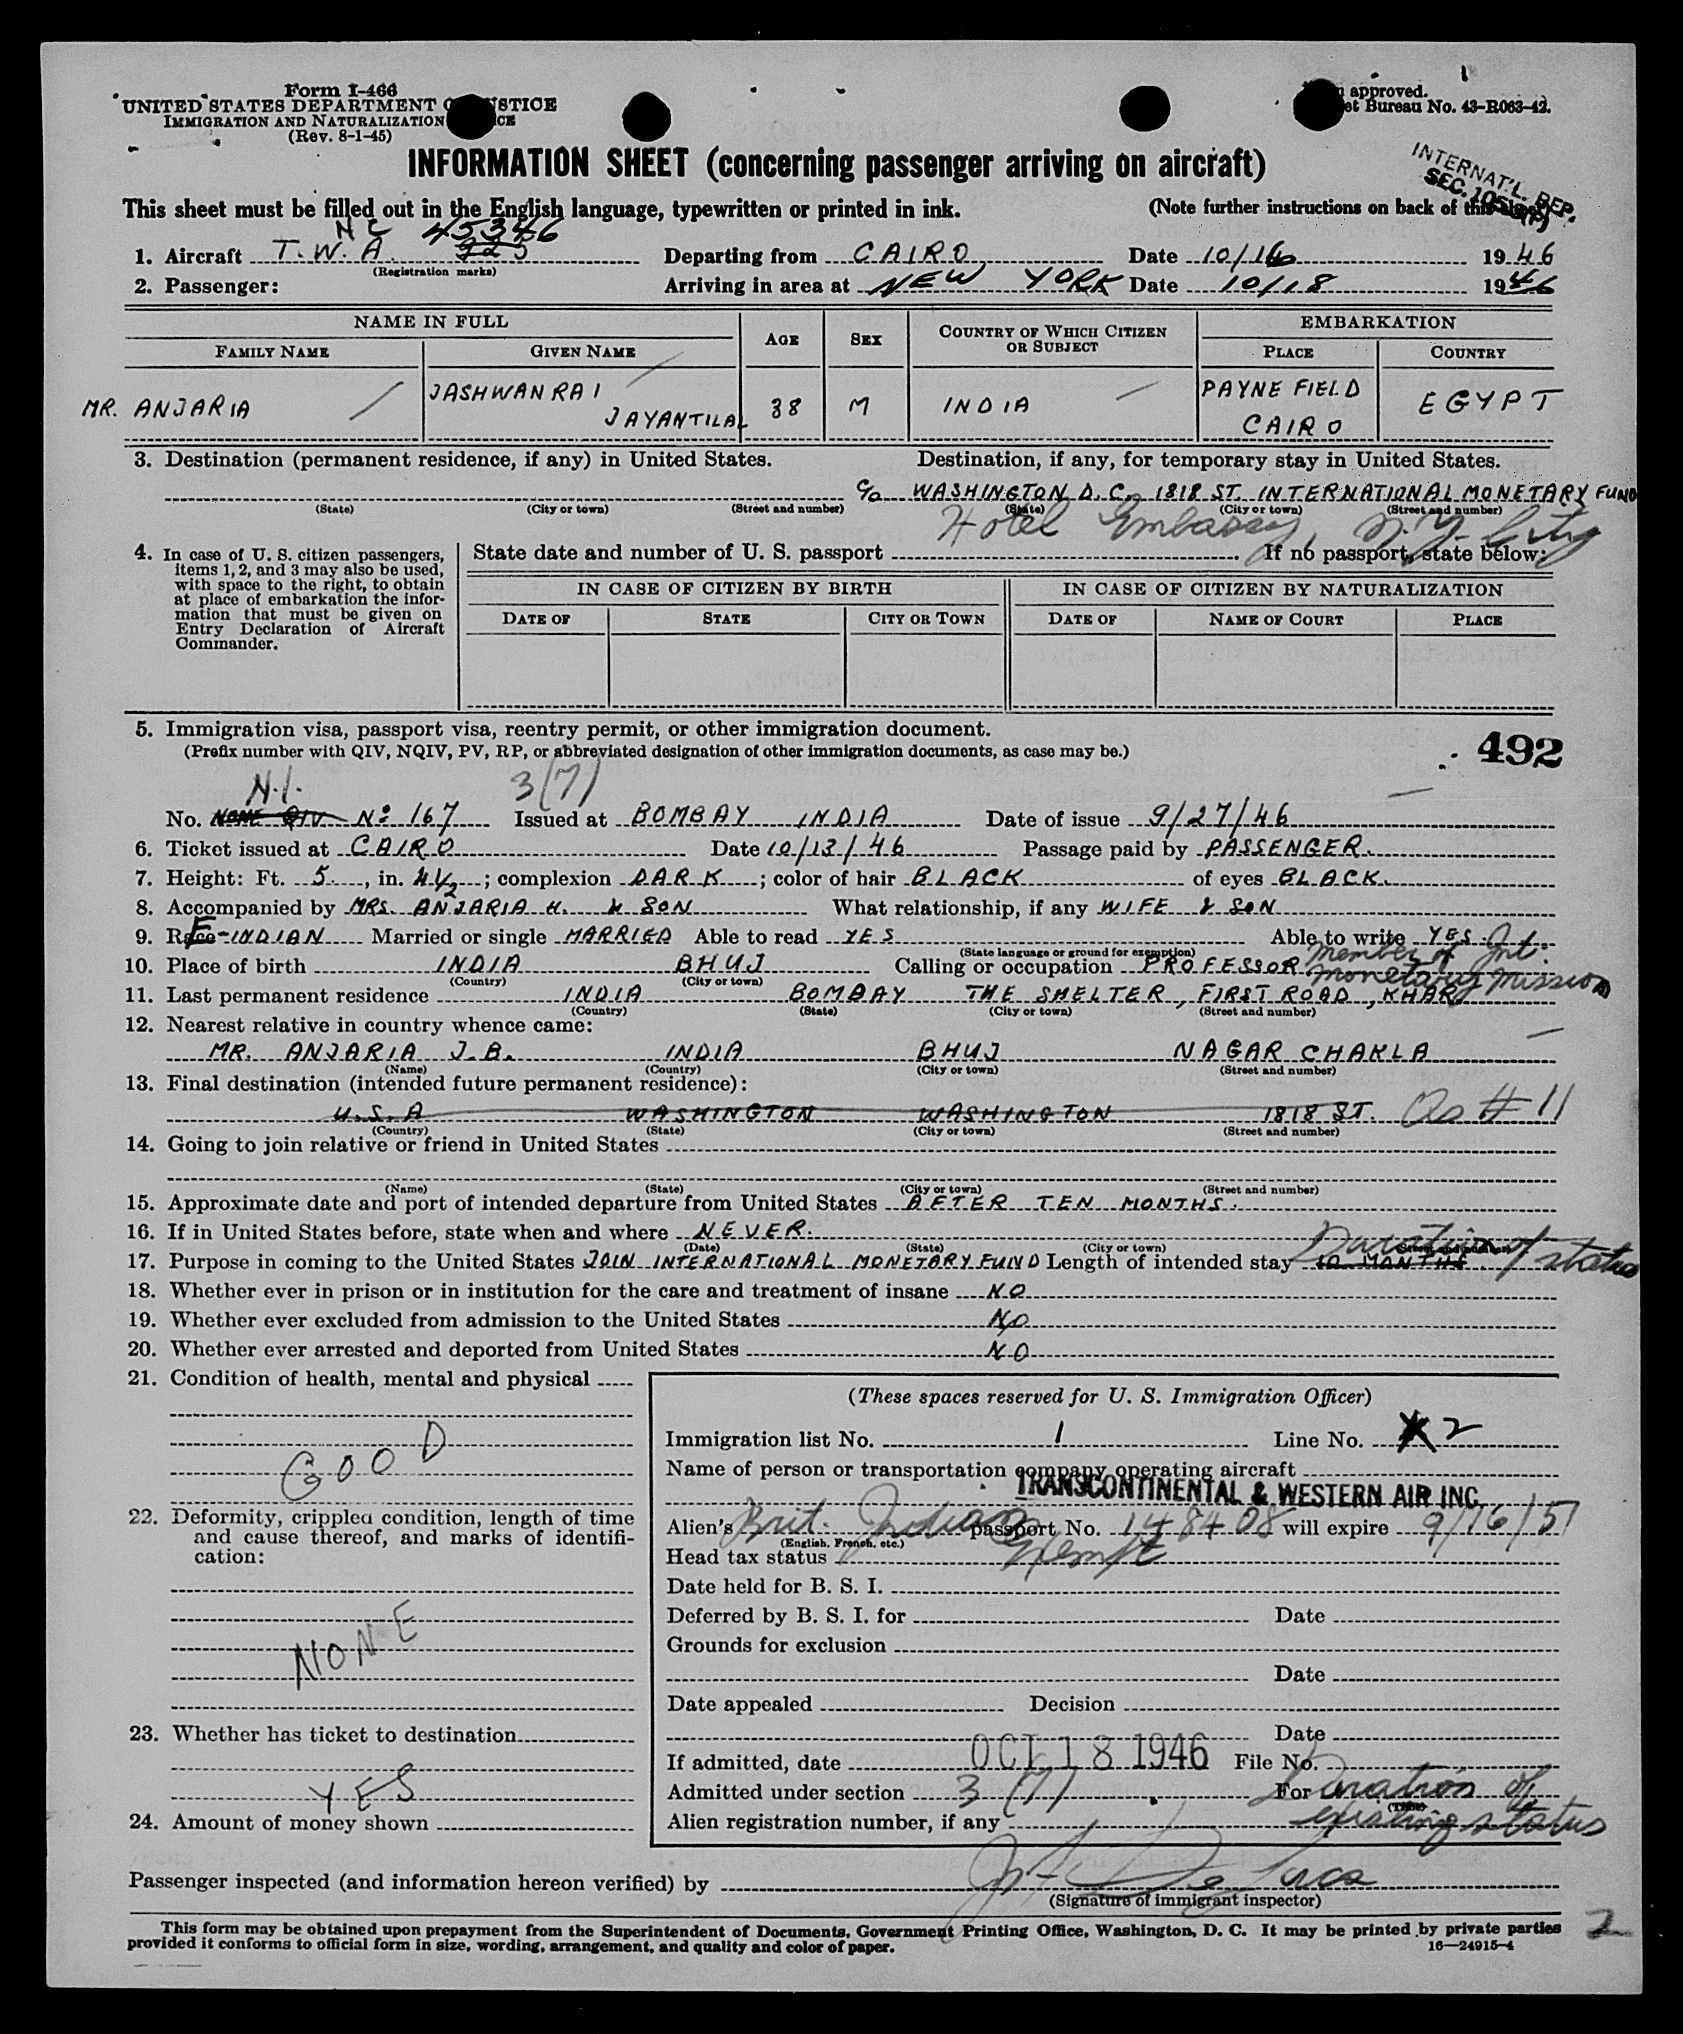 Form I-466
UNITED STATES DEPARTMENT OF JUSTICE
IMMIGRATION AND NATURALIZATION SERVICE
(Rev. 8-1-45)
approved.
et Bureau No. 43-R063-42.
INTERNAT'L. REP.
SEC.
INFORMATION SHEET (concerning passenger arriving on aircraft)
This sheet must be filled out in the English language, typewritten or printed in ink. (Note further instructions on back of this sheet)
NC 45346
1. Aircraft T.W.A. 225 Departing from CAIRO Date 10/16 1946
(Registration marks)
2. Passenger: Arriving in area at NEW YORK Date 10/18 1946
NAME IN FULL AGE SEX COUNTRY OF WHICH CITIZEN OR SUBJECT EMBARKATION
FAMILY NAME GIVEN NAME PLACE COUNTRY
MR. ANJARIA JASHWANRAI JAYANTILAL 38 M INDIA PAYNE FIELD CAIRO EGYPT
3. Destination (permanent residence, if any) in United States. Destination, if any, for temporary stay in United States.
C/o WASHINGTON D.C. 1818 ST. INTERNATIONAL MONETARY FUND
(State) (City or town) (Street and number) (State) (City or town) (Street and number)
Hotel Embassy, N.Y. City
4. In case of U. S. citizen passengers, items 1, 2, and 3 may also be used, with space to the right, to obtain at place of embarkation the information that must be given on Entry Declaration of Aircraft Commander.
State date and number of U. S. passport . If no passport, state below:
IN CASE OF CITIZEN BY BIRTH IN CASE OF CITIZEN BY NATURALIZATION
DATE OF STATE CITY OR TOWN DATE OF NAME OF COURT PLACE
5. Immigration visa, passport visa, reentry permit, or other immigration document.
(Prefix number with QIV, NQIV, PV, RP, or abbreviated designation of other immigration documents, as case may be.)
492
N.I. 3(7)
No. NONE QIV No 167 Issued at BOMBAY INDIA Date of issue 9/27/46
6. Ticket issued at CAIRO Date 10/13/46 Passage paid by PASSENGER.
7. Height: Ft. 5, in. 4½; complexion DARK; color of hair BLACK of eyes BLACK.
8. Accompanied by MRS. ANJARIA H. & SON What relationship, if any WIFE & SON
9. Race E-INDIAN Married or single MARRIED Able to read YES Able to write YES
(State language or ground for exemption)
10. Place of birth INDIA BHUJ Calling or occupation PROFESSOR. Member of Int. Monetary Mission
(Country) (City or town)
11. Last permanent residence INDIA BOMBAY THE SHELTER, FIRST ROAD, KHAR
(Country) (State) (City or town) (Street and number)
12. Nearest relative in country whence came:
MR. ANJARIA J.B. INDIA BHUJ NAGAR CHAKLA
(Name) (Country) (City or town) (Street and number)
13. Final destination (intended future permanent residence):
U.S.A WASHINGTON WASHINGTON 1818 ST. As # 11
(Country) (State) (City or town) (Street and number)
14. Going to join relative or friend in United States
(Name) (State) (City or town) (Street and number)
15. Approximate date and port of intended departure from United States AFTER TEN MONTHS.
16. If in United States before, state when and where NEVER.
(Date) (State) (City or town) (Street and number)
17. Purpose in coming to the United States JOIN INTERNATIONAL MONETARY FUND Length of intended stay 10 MONTHS. Duration of status
18. Whether ever in prison or in institution for the care and treatment of insane NO
19. Whether ever excluded from admission to the United States NO
20. Whether ever arrested and deported from United States NO
21. Condition of health, mental and physical
GOOD
22. Deformity, crippled condition, length of time and cause thereof, and marks of identification:
NONE
23. Whether has ticket to destination
YES
24. Amount of money shown
(These spaces reserved for U. S. Immigration Officer)
Immigration list No. 1 Line No. 2
Name of person or transportation company operating aircraft
TRANSCONTINENTAL & WESTERN AIR INC.
Alien's Brit. Indian passport No. 148408 will expire 9/16/51
(English, French, etc.)
Head tax status Exempt
Date held for B. S. I.
Deferred by B. S. I. for Date
Grounds for exclusion
Date
Date appealed Decision
Date
If admitted, date OCT 18 1946 File No.
Admitted under section 3(7) For Duration of existing status
(Time)
Alien registration number, if any
Passenger inspected (and information hereon verified) by
(Signature of immigrant inspector)
This form may be obtained upon prepayment from the Superintendent of Documents, Government Printing Office, Washington, D. C. It may be printed by private parties
provided it conforms to official form in size, wording, arrangement, and quality and color of paper. 16—24915-4
2